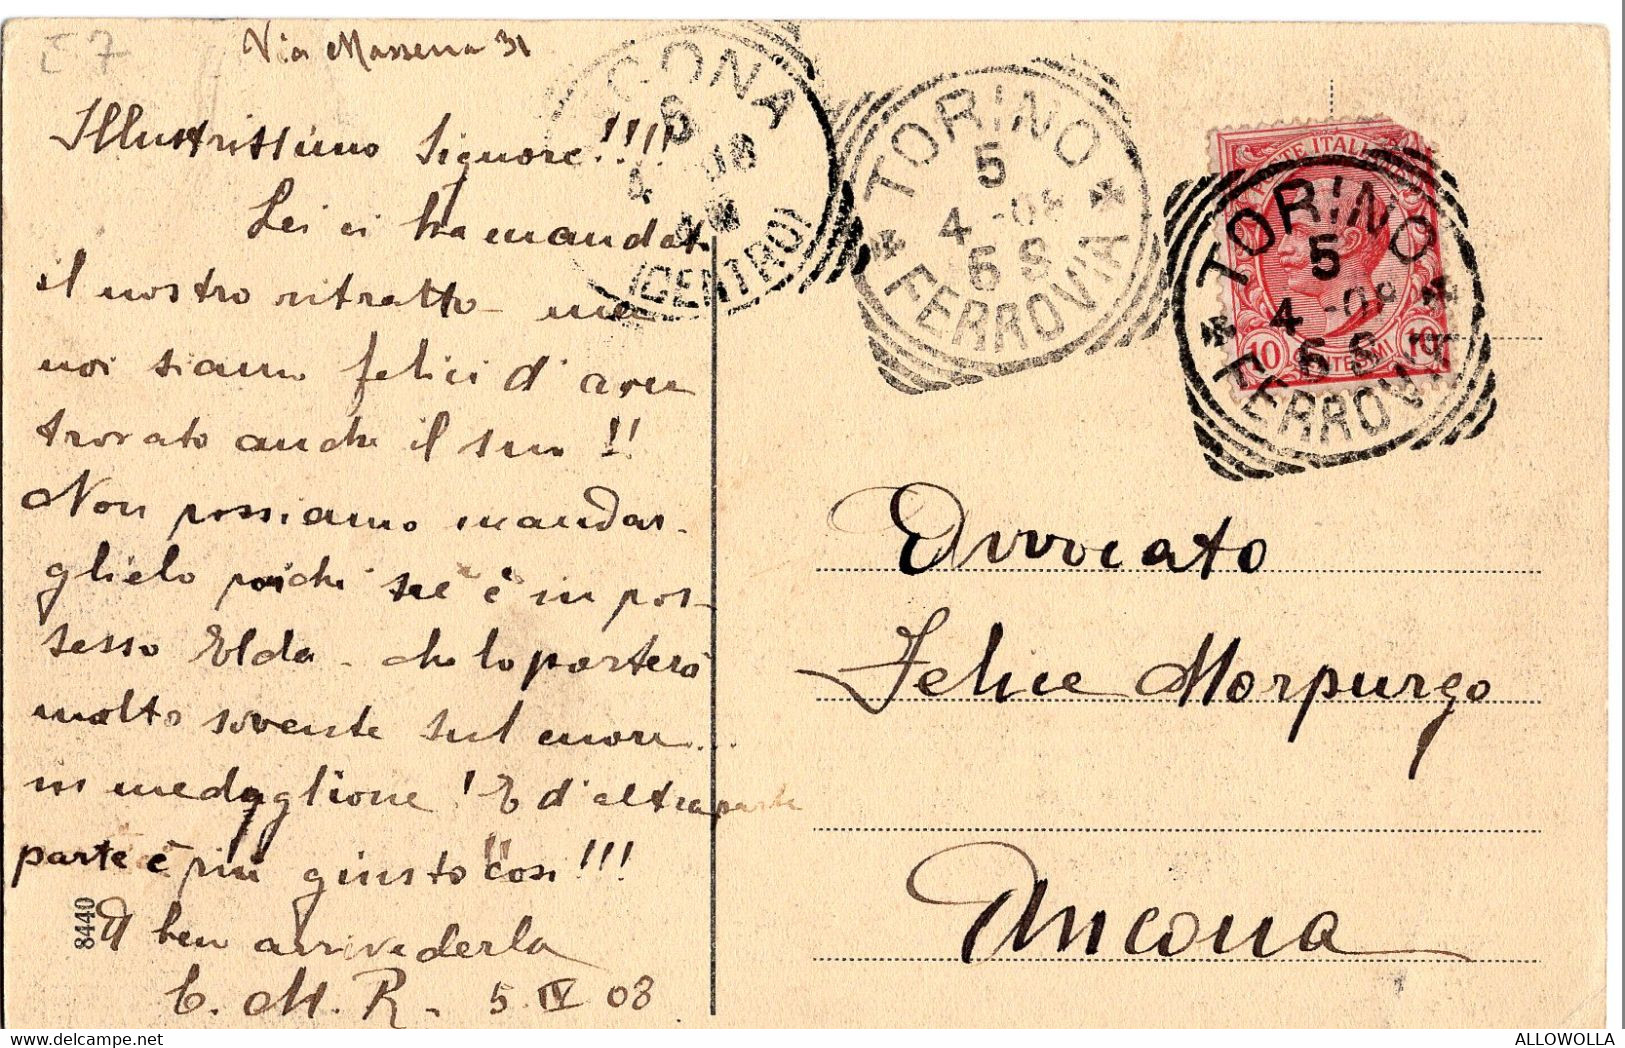 E 7
Via Massena 31
Illustrissimo Signore!!!!
Lei ci ha mandato
il nostro ritratto - ma
noi siamo felici d'aver
trovato anche il suo!!
Non possiamo mandar-
glielo poichè ne è in pos-
sesso Elda - che lo porterà
molto sovente sul cuore...
in medaglione! E d'altra parte
parte è più giusto così!!!
A ben arrivederla
E. M. R. - 5 IV 08
8440
CONA
6
4 08
4
(CENTRO)
TORINO
5
4 -08
6 S
FERROVIA
POSTE ITALIANE
10 CENTESIMI 10
TORINO
5
4 -08
6 S
FERROVIA
Avvocato
Felice Morpurgo
Ancona
ALLOWOLLA